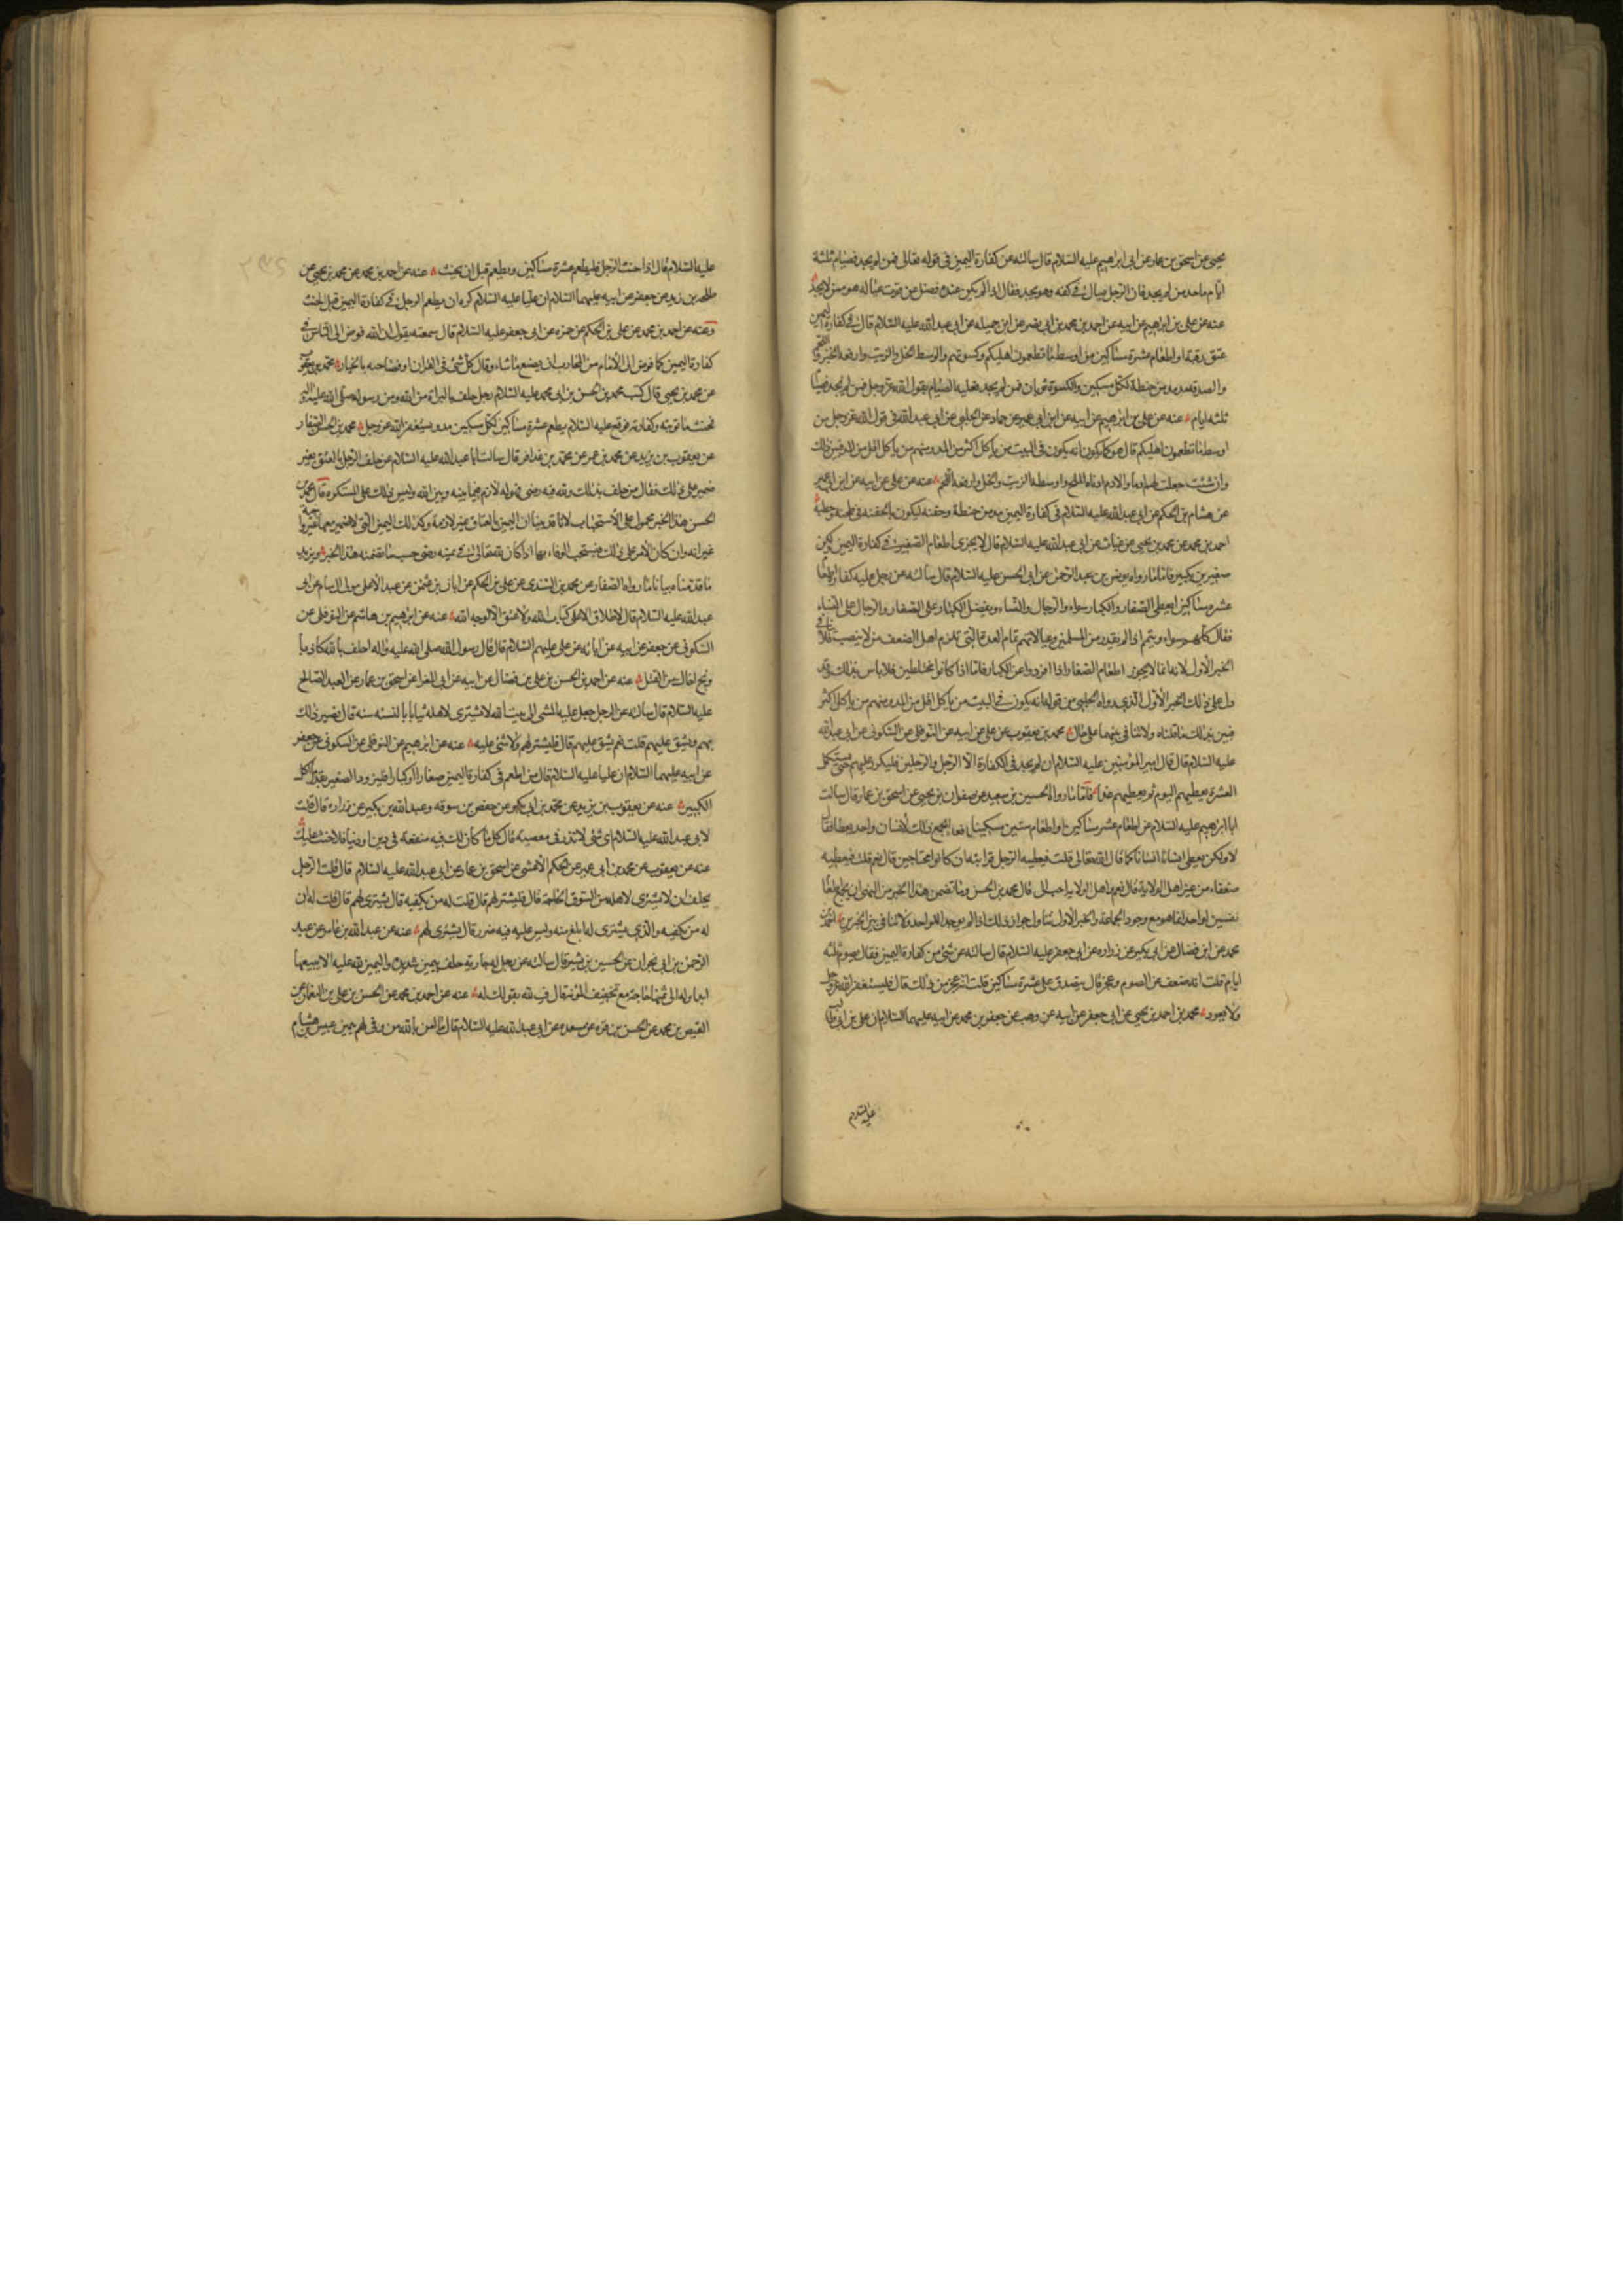 يحيى عن اسحق بن عمار عن ابى ابراهيم عليه السلام قال سالته عن كفارة اليمين فى قوله تعالى فمن لم يجد فصيام ثلثة
ايام ماحد من لم يجد فان الرجل يسال فى كفه وهو يجد فقال اذا لم يكن عنده فضل عن قوت عياله هو ممن لا يجد
عنه عن على بن ابراهيم عن ابيه عن احمد بن محمد بن ابى نصر عن ابن جميله عن ابى عبد الله عليه السلام قال فى كفارة اليمين
عتق رقبة او اطعام عشرة مساكين من اوسط ما تطعمون اهليكم وكسوتهم والوسط الخل والزيت وارفعه الخبز واللحم
والصدقة مد مد من حنطة لكل مسكين والكسوة ثوبان فمن لم يجد فعليه الصيام يقول الله عز وجل فمن لم يجد فصيام
ثلثه ايام عنه عن على بن ابرهيم عن ابيه عن ابن ابى عمير عن حماد عن الحلبى عن ابى عبد الله فى قول الله عز وجل من
اوسط ما تطعمون اهليكم قال هو كما يكون انه يكون فى البيت من ياكل اكثر من المد ومنهم من ياكل اقل من المد فبين ذلك
وان شئت جعلت لهم ادما والادم ادناه الملح واوسطه الزيت والخل وارفعه اللحم عنه عن على عن ابيه عن ابن ابى عمير
عن هشام بن الحكم عن ابى عبد الله عليه السلام فى كفارة اليمين مد من حنطة وحفنه ليكون الحفنه فى طحنه وحطبه
احمد بن محمد عن محمد بن يحيى عن غياث عن ابى عبد الله عليه السلام قال لا يجزى اطعام الصغير فى كفارة اليمين ولكن
صغيرين بكبير فاما ما رواه يونس بن عبد الرحمن عن ابى الحسن عليه السلام قال سالته عن رجل عليه كفارة اطعام
عشره مساكين ايعطى الصغار والكبار سواء والرجال والنساء ويفضل الكبار على الصغار والرجال على النساء
فقال كلهم سواء ويتمم اذا لم يقدر من المسلمين وعيالاتهم تمام العدة التى تلزم اهل الضعف من لا ينصب فلا ينافى
الخبر الاول لانه انما لا يجوز اطعام الصغار اذا افردوا عن الكبار فاما اذا كانوا مختلطين فلا باس بذلك وقد
دل على ذلك الخبر الاول الذى رواه الحلبى من قوله انه يكون فى البيت من ياكل اقل من المد ومنهم من ياكل اكثر
فبين بذلك ما قلناه ولا تنافى بينهما على حال محمد بن يعقوب عن على عن ابيه عن النوفلى عن السكونى عن ابى عبد الله
عليه السلام قال قال امير المؤمنين عليه السلام ان لم يجد فى الكفارة الا الرجل والرجلين فليكرر عليهم حتى يستكمل
العشرة يعطيهم اليوم ثم يعطيهم غدا فاما ما رواه الحسين بن سعيد عن صفوان بن يحيى عن اسحق بن عمار قال سالت
ابا ابراهيم عليه السلام عن اطعام عشر مساكين او اطعام ستين مسكينا ايجمع ذلك لانسان واحد يعطاه فقال
لا ولكن يعطى انسانا انسانا كما قال الله تعالى قلت فيعطيه الرجل قرابته ان كانوا محتاجين قال نعم قلت فيعطيه
ضعفاء من غير اهل الولاية قال نعم واهل الولاية احب الى قال محمد بن الحسن وما تضمن هذا الخبر من النهى ان يجمع طعام
نفسين لواحد انما هو مع وجود الجماعة والخبر الاول تناول جواز ذلك اذا لم يوجد الا واحد فلا تنافى بين الخبرين احمد بن
محمد عن ابن فضال عن ابى بكير عن زراره عن ابى جعفر عليه السلام قال سالته عن شئ من كفارة اليمين فقال يصوم ثلثه
ايام قلت انه ضعف عن الصوم وعجز قال يتصدق على عشرة مساكين قلت انه عجز من ذلك قال فليستغفر الله عز وجل
ولا يعود محمد بن احمد بن يحيى عن ابى جعفر عن ابيه عن وهب عن جعفر بن محمد عن ابيه عليهما السلام ان على بن ابى طالب
عليه السلام
عليه السلام قال اذا حنث الرجل فليطعم عشرة مساكين ويطعم قبل ان يحنث عنه عن احمد بن محمد عن محمد بن يحيى عن
طلحه بن زيد عن جعفر عن ابيه عليهما السلام ان عليا عليه السلام كره ان يطعم الرجل فى كفارة اليمين قبل الحنث
وعنه عن احمد بن محمد عن على بن الحكم عن حمزه عن ابى جعفر عليه السلام قال سمعته يقول ان الله فوض الى الناس فى
كفارة اليمين كما فوض الى الامام من المحارب ان يصنع ما شاء وقال كل شئ فى القران او فصاحبه بالخيار محمد بن يحيى
عن محمد بن يحيى قال كتب محمد بن الحسن بن ابى محمد عليه السلام رجل حلف بالبراة من الله ومن رسوله صلى الله عليه واله
فحنث ما توبته وكفارته فوقع عليه السلام يطعم عشرة مساكين لكل مسكين مد ويستغفر الله عز وجل محمد بن الحسن الصفار
عن يعقوب بن يزيد عن محمد بن عمر عن محمد بن عذافر قال سالت ابا عبد الله عليه السلام عن حلف الرجل بالعتق بغير
ضمير على ذلك فقال من حلف بذلك ولله فيه رضى فهو له لازم فيما بينه وبين الله وليس ذلك على المستكره قال محمد بن
الحسن هذا الخبر محمول على الاستحباب لانا قد بينا ان اليمين بالعتاق غير لازمة وكذلك اليمين التى لا ضمير معها
غير انه وان كان الامر على ذلك فيستحب الوفاء بها اذا كان لله تعالى فى يمينه رضى حسب ما تضمنه هذا الخبر ويزيد
ما قدمناه بيانا ما رواه الصفار عن محمد بن السندى عن على بن الحكم عن ابان بن عثمن عن عبد الاعلى مولى ال سام عن ابى
عبد الله عليه السلام قال لا طلاق الا على كتاب الله ولا عتق الا لوجه الله عنه عن ابرهيم بن هاشم عن النوفلى عن
السكونى عن جعفر عن ابيه عن ابائه عن على عليهم السلام قال قال رسول الله صلى الله عليه واله احلف بالله كاذبا
ونج اخاك من القتل عنه عن احمد بن الحسن بن على بن فضال عن ابيه عن ابى المغرا عن اسحق بن عمار عن العبد الصالح
عليه السلام قال سالته عن الرجل جعل عليه المشى الى بيت الله لا شترى لاهله ثيابا بالنسئه سنه قال يضير ذلك
بهم ويشق عليهم قلت نعم يشق عليهم قال فليشتر لهم ولا شئ عليه عنه عن ابرهيم عن النوفلى عن السكونى عن جعفر
عن ابيه عليهما السلام ان عليا عليه السلام قال من اطعم فى كفارة اليمين صغارا او كبارا فليزود الصغير بقدر ما اكل
الكبير عنه عن يعقوب بن يزيد عن محمد بن ابى عمير عن حفص بن سوقه وعبد الله بن بكير عن زراره قال قلت
لابى عبد الله عليه السلام اى شئ لا نذر فى معصية قال كل ما كان لك فيه منفعة فى دين او دنيا فلا حنث عليك
عنه عن يعقوب عن محمد بن ابى عمير عن الحكم الاعشى عن اسحق بن عمار عن ابى عبد الله عليه السلام قال قلت الرجل
يحلف ان لا يشترى لاهله من السوق الحاجة قال فليشتر لهم قال قلت له من يكفيه قال يشترى لهم قال قلت له ان
له من يكفيه والذى يشترى له ابلغ منه وليس عليه فيه ضرر قال يشترى لهم عنه عن عبد الله بن عامر عن عبد
الرحمن بن ابى نجران عن الحسين بن بشير قال سالته عن رجل له جارية حلف بيمين شديدة واليمين لله عليه الا يبيعها
ابدا وله الى ثمنها حاجة مع تخفيف المؤنة قال ف لله بقولك له عنه عن احمد بن محمد عن الحسن بن على بن النعمان عن
القيض بن محمد عن الحسن بن قره عن مسعده عن ابى عبد الله عليه السلام قال